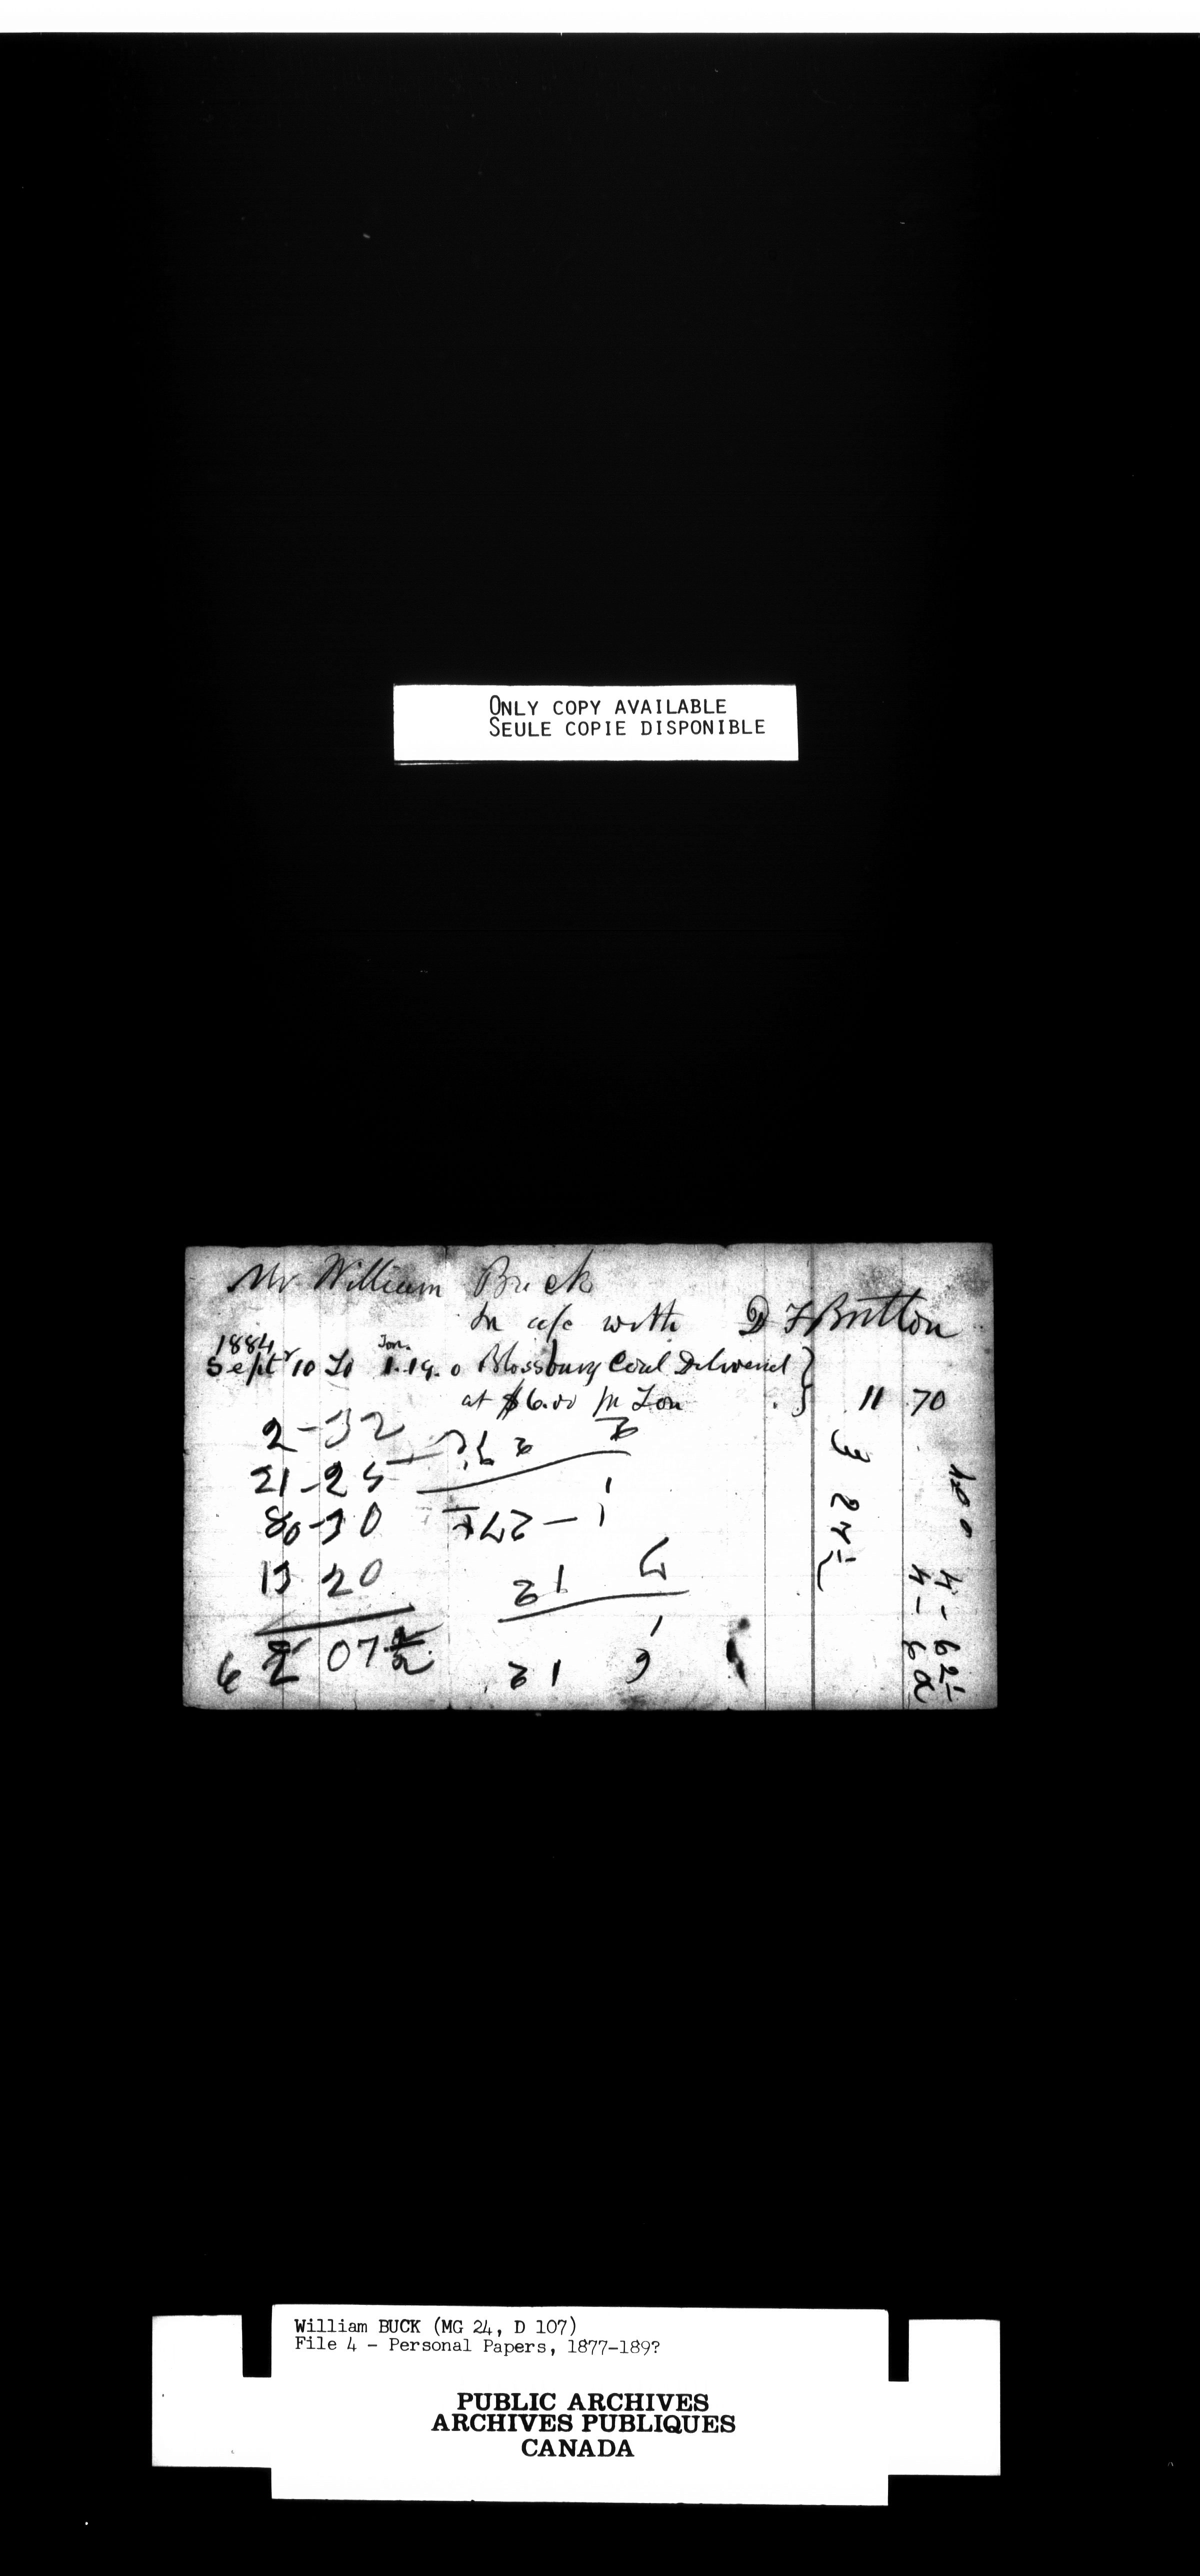 ONLY COPY AVAILABLE
SEULE COPIE DISPONIBLE
Mr William Buck
In a/c with D F Button
1884
Sept 10 To 1.19.0 Blossburg Coal Delivered }
Ton.
at $6.00 pr Ton } 11 70
2-32
21-25
80-30
13 20
6 2 07
William BUCK (MG 24, D 107)
File 4 - Personal Papers, 1877-189?
PUBLIC ARCHIVES
ARCHIVES PUBLIQUES
CANADA